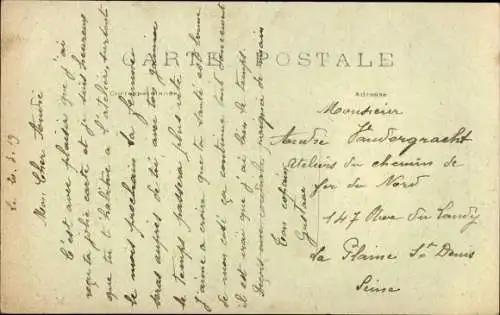 CARTE POSTALE
Correspondance
Adresse
Le 20.5.19
Mon Cher André
C'est avec plaisir que j'ai
reçu ta jolie carte et je suis heureux
que tu t'habitue a l'atelier, surtout
le mois prochain ta
seras auprès de toi avec ton gamin
le temps passera plus vite.
J'aime a croire que ta santé est bonne
de mon coté ça continue tout doucement
il est vrai que j'ai bien le temps.
Reçois une cordiale poignée de main
Ton copain
Gustave
Monsieur
André Vandergracht
Ateliers du chemin de
fer du Nord
147 Rue du Landy
La Plaine St Denis
Seine